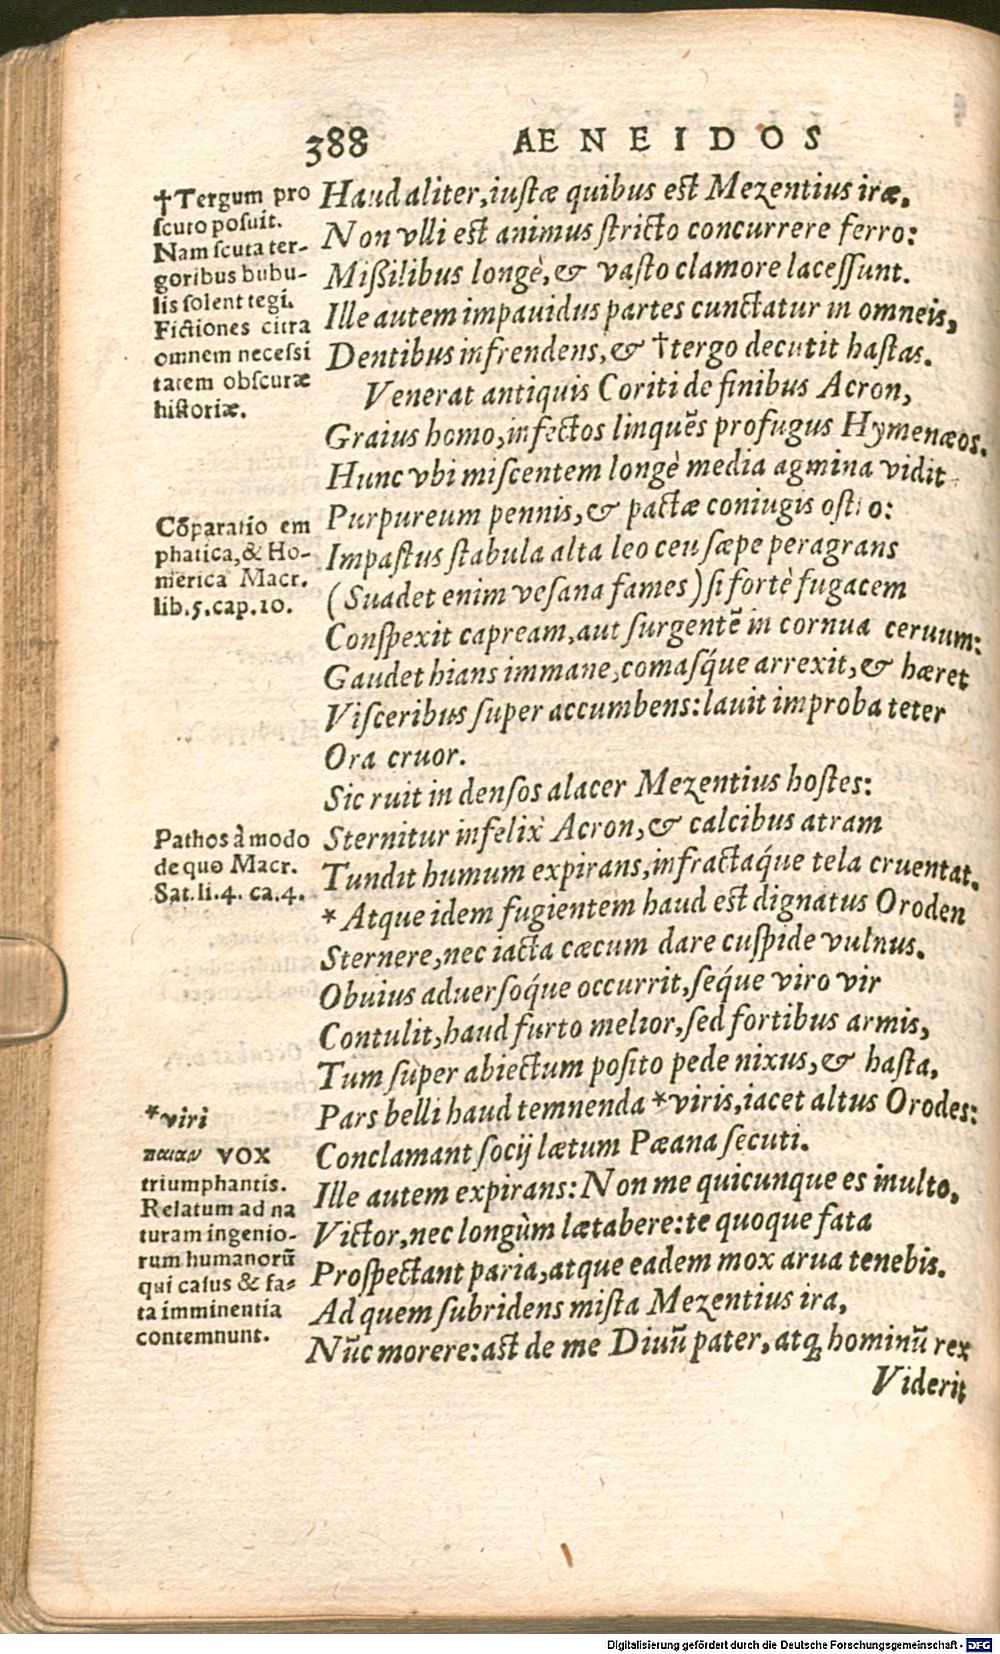 388 AENEIDOS
†Tergum pro
scuto posuit.
Nam scuta ter-
goribus bubu-
lis solent tegi.
Fictiones citra
omnem necessi
tatem obscuræ
historiæ.
Cõparatio em
phatica, & Ho-
merica Macr.
lib.5.cap.10.
Pathos à modo
de quo Macr.
Sat.li.4. ca.4.
*viri
παιαν VOX
triumphantis.
Relatum ad na
turam ingenio-
rum humanorũ
qui casus & fa-
ta imminentia
contemnunt.
Haud aliter, iustæ quibus est Mezentius iræ,
Non vlli est animus stricto concurrere ferro:
Mißilibus longè, & vasto clamore lacessunt.
Ille autem impauidus partes cunctatur in omneis,
Dentibus infrendens, & †tergo decutit hastas.
Venerat antiquis Coriti de finibus Acron,
Graius homo, infectos linquẽs profugus Hymenæos.
Hunc vbi miscentem longè media agmina vidit
Purpureum pennis, & pactæ coniugis ostro:
Impastus stabula alta leo ceu sæpe peragrans
(Suadet enim vesana fames) si fortè fugacem
Conspexit capream, aut surgentẽ in cornua ceruum:
Gaudet hians immane, comasq́ue arrexit, & hæret
Visceribus super accumbens: lauit improba teter
Ora cruor.
Sic ruit in densos alacer Mezentius hostes:
Sternitur infelix Acron, & calcibus atram
Tundit humum expirans, infractaq́ue tela cruentat.
*Atque idem fugientem haud est dignatus Oroden
Sternere, nec iacta cæcum dare cuspide vulnus.
Obuius aduersoq́ue occurrit, seq́ue viro vir
Contulit, haud furto melior, sed fortibus armis,
Tum super abiectum posito pede nixus, & hasta,
Pars belli haud temnenda *viris, iacet altus Orodes:
Conclamant socij lætum Pæana secuti.
Ille autem expirans: Non me quicunque es inulto,
Victor, nec longùm lætabere: te quoque fata
Prospectant paria, atque eadem mox arua tenebis.
Ad quem subridens mista Mezentius ira,
Nũc morere: ast de me Diuũ pater, atq; hominũ rex
Viderit
Digitalisierung gefördert durch die Deutsche Forschungsgemeinschaft - DFG